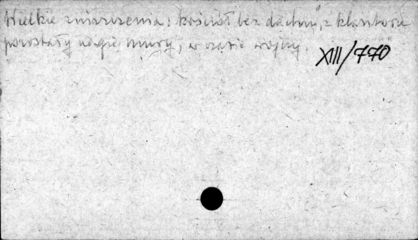 Wielkie zniszczenia; kościół bez dachu, z klasztoru
pozostały nagie mury, w czasie wojny.
XIII/770